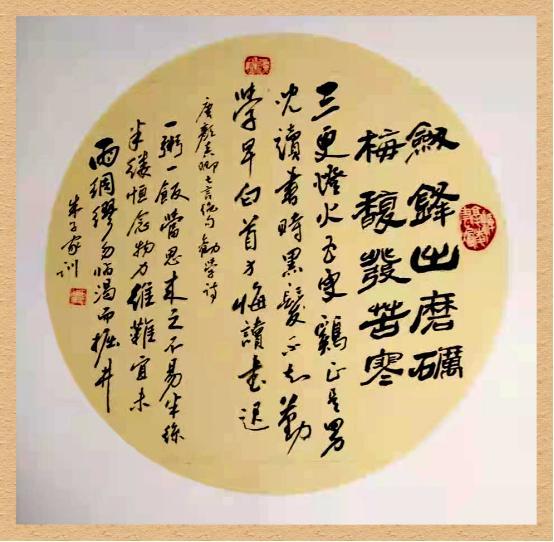 劔鋒出磨礪
梅馥發苦寒
三更燈火五更鷄正是男
児讀書時黑髮不知勤
學早白首方悔讀書遲
唐顏真卿七言絕句勸學詩
一粥一飯當思來之不易半絲
半縷恒念物力維難宜未
雨綢繆勿臨渴而掘井
朱子家训